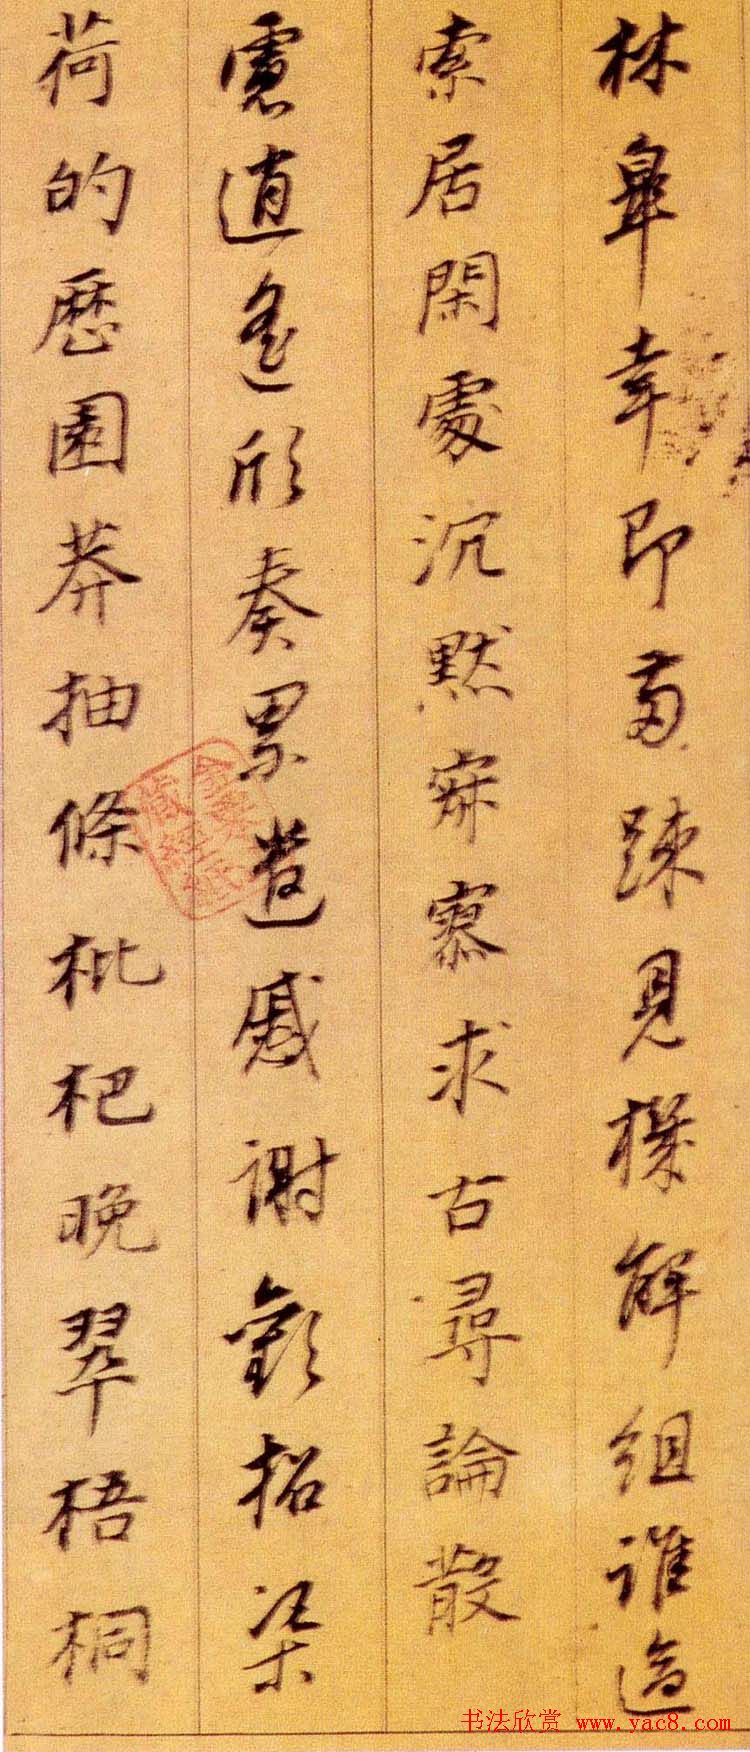 林皐幸即兩疎見機解組誰逼
索居閑處沉默寂寥求古尋論散
慮逍遙欣奏累遣慼謝歡招渠
荷的歷園莽抽條枇杷晚翠梧桐
金粟山藏經紙
书法欣赏 www.yac8.com